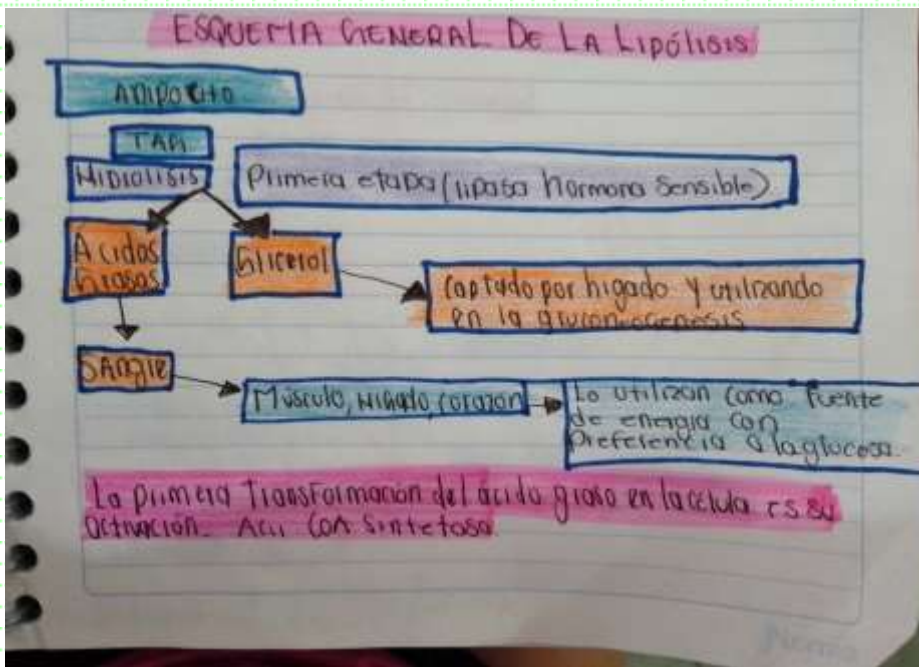 ESQUEMA GENERAL DE LA LIPÓLISIS
ADIPOCITO
TAG
HIDROLISIS
Primera etapa (lipasa hormona sensible)
Acidos
Grasos
Glicerol
Captado por higado y utilizando
en la gluconeogenesis
SANGRE
Músculo, Higado, corazon
Lo utilizan como fuente
de energia con
Preferencia a la glucosa.
La primera Transformacion del acido graso en la celula es su
activación. Acil COA sintetasa.